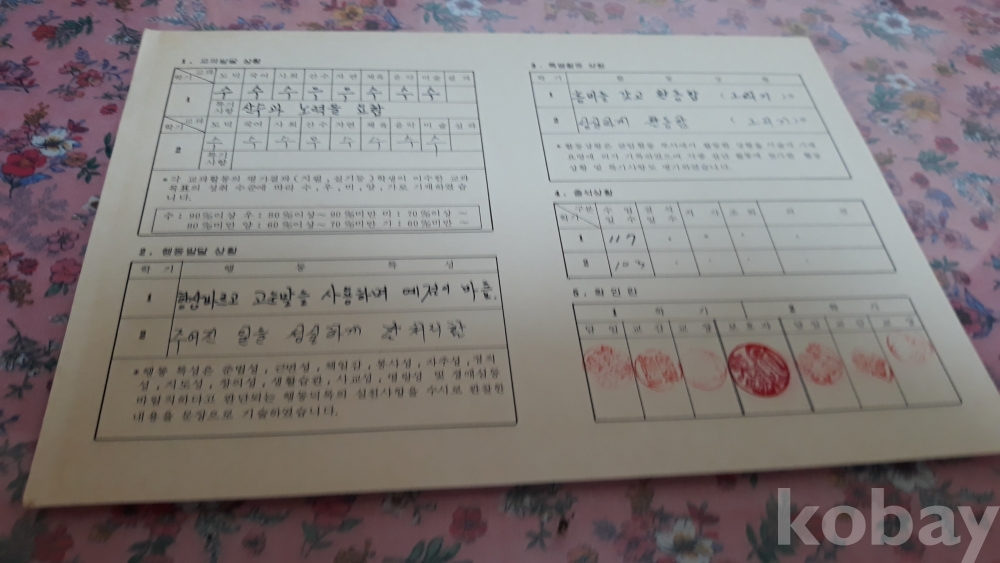 1. 교과발달 상황
학기 교과 도덕 국어 사회 산수 자연 체육 음악 미술 실과
1 수 수 수 우 우 수 수 수
특기사항 산수과 노력을 요함
학기 교과 도덕 국어 사회 산수 자연 체육 음악 미술 실과
2 수 수 수 우 수 수 수 수
특기사항
*각 교과활동의 평가결과(지필,실기등)학생이 이수한 교과
목표의 성취 수준에 따라 수,우,미,양,가로 기재하였습
니다.
수:90%이상 우:80%이상~90%미만 미:70%이상~
80%미만 양:60%이상~70%미만 가:60%미만
2. 행동발달 상황
학기 행동특성
1 행실바르고 고운말을 사용하며 예절이 바름.
2 주어진 일을 성실하게 잘 처리함
*행동 특성은 준법성,근면성,책임감,봉사성,자주성,정직
성,지도성,창의성,생활습관,사교성,명랑성 및 장애심등
바람직하다고 판단되는 행동덕목의 실천사항을 수시로 관찰한
내용을 문장으로 기술하였습니다.
3. 특별활동 상황
학기 활동상황
1 흥미를 갖고 활동함
2 성실하게 활동함
4. 출석상황
학기 구분 수업일수 결석일수 지각 조퇴
1 117
2 103
5. 확인란
1 학기 2 학기
담임 교감 교장 보호자 담임 교감 교장
kobay